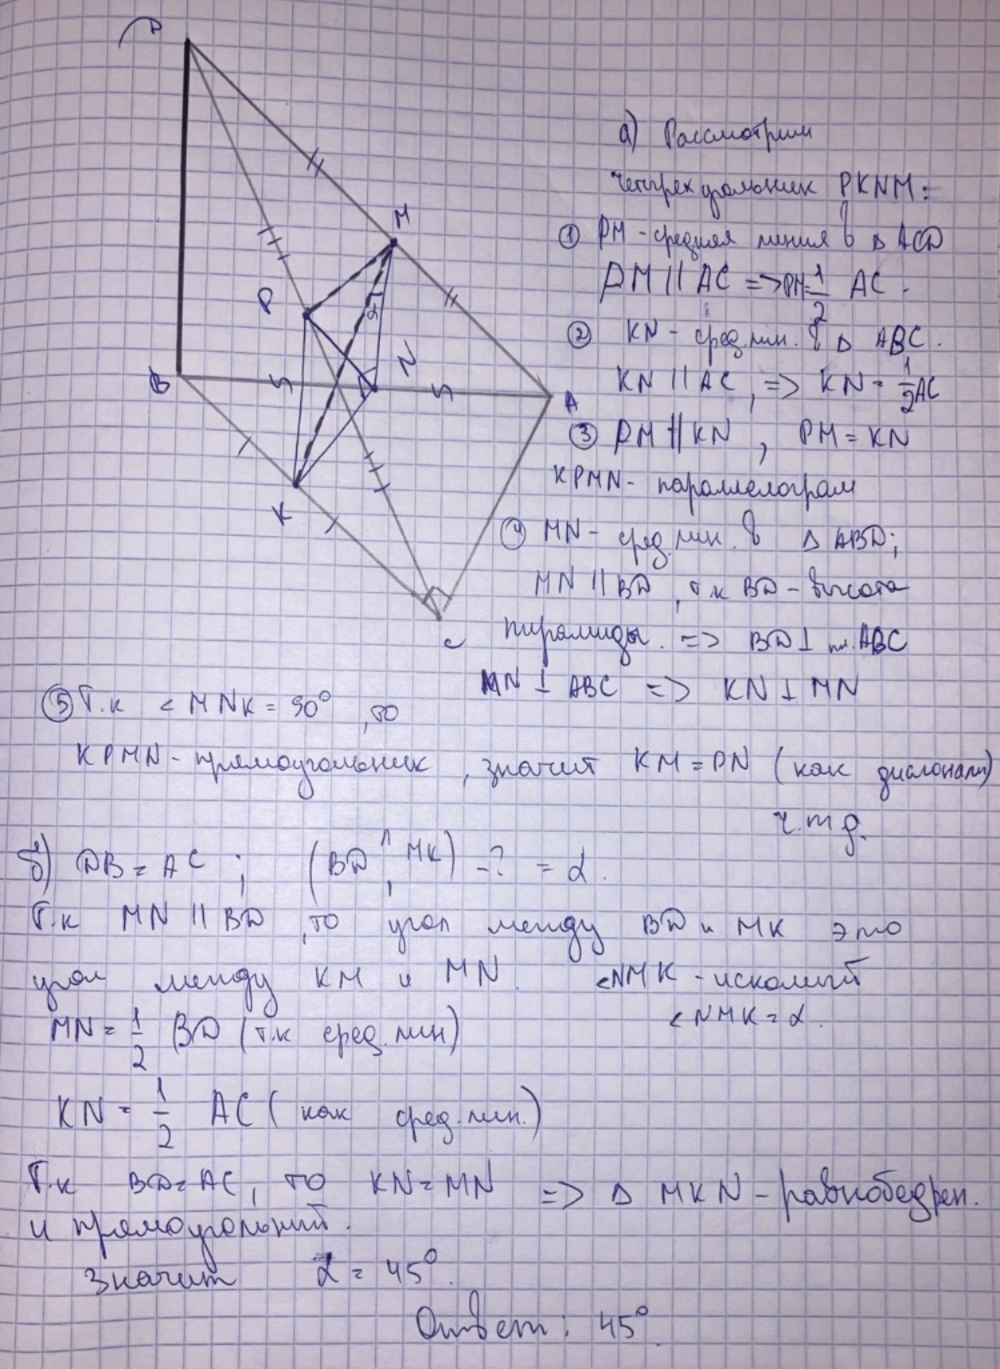 D
M
P
α
N
B
A
K
C
а) Рассмотрим
четырехугольник PKNM:
① PM - средняя линия в △ ACD
PM || AC => PM = 1/2 AC.
② KN - сред.лин. в △ ABC.
KN || AC, => KN = 1/2 AC
③ PM || KN, PM = KN
KPMN - параллелограм
④ MN - сред.лин. в △ ABD;
MN || BD, т.к BD - высота
пирамиды. => BD ⊥ пл. ABC
MN ⊥ ABC => KN ⊥ MN
⑤ Т.к < MNK = 90°, то
KPMN - прямоугольник, значит KM = PN (как диагонали)
ч.т.д.
б) DB = AC; (BD ^, MK) - ? = α.
Т.к MN || BD, то угол между BD и MK это
угол между KM и MN. <NMK - искомый
<NMK = α.
MN = 1/2 BD (т.к сред.лин)
KN = 1/2 AC (как сред.лин.)
Т.к BD = AC, то KN = MN => △ MKN - равнобедрен.
и прямоугольний.
Значит α = 45°.
Ответ: 45°